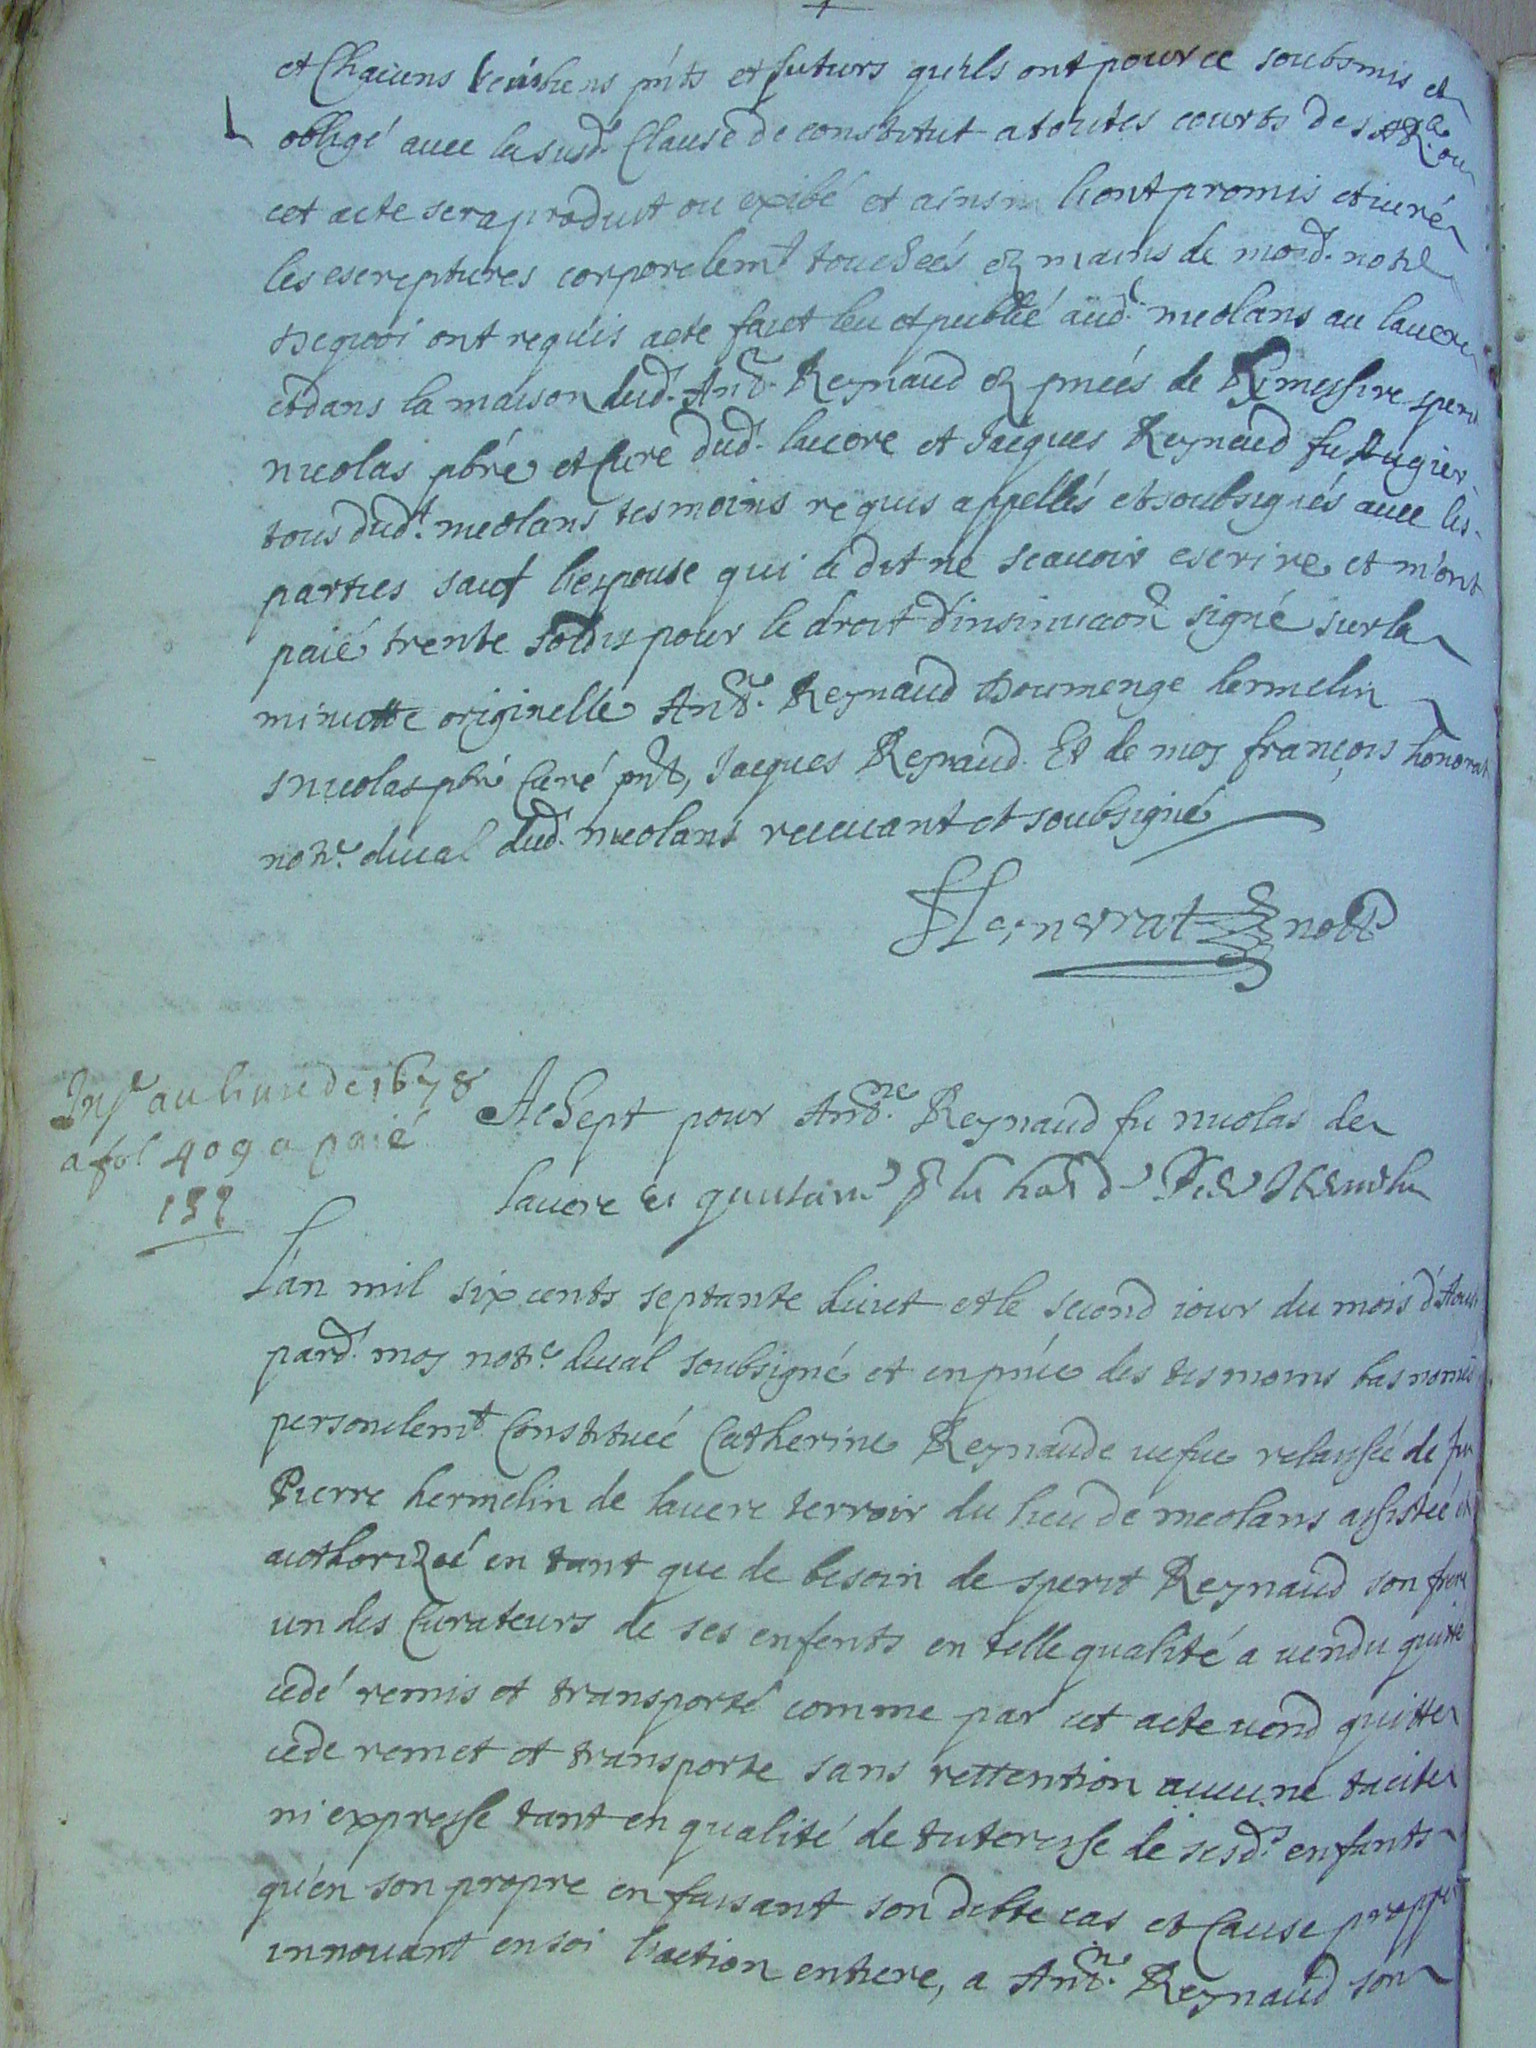 et Chacuns leurs biens pnts et futurs qu'ils ont pour ce soubsmis et
obligé avec la susd. Clause de constitut a toutes courts de S. A. R. ou
cet acte sera produit ou exibé et ainsin l'ont promis et iuré
les escreptures corporelemt touchées ez mains de moid. notre
Dequoi ont requis acte faict leu et publié aud. meolans au lavere
et dans la maison dud. Anthe. Reynaud ez pnces de messire sperit
nicolas pbre et Curé dud. lavere et Jacques Reynaud fu Augier
tous dudt. meolans tesmoins requis appellés et soubsignés avec les
parties sauf l'espouse qui a dit ne scavoir escrire et m'ont
paié trente soldis pour le droit d'insinuaon signé sur la
minutte originelle Anthe. Reynaud Doumenge hermelin
S nicolas pbre Curé pnt, Jacques Reynaud Et de moy françois honorat
notre. ducal dud. meolans recevant et soubsigné
Honnorat notre
Inse au livre de 1678
a fol 409 a paié
Achept pour Anthne. Reynaud fu nicolas de
lavere
L'an mil six cents septante huict et le second iour du mois d'Aoust
pard. moy notre. ducal soubsigné et en pnce des tesmoins bas només
personelemt Constituée Catherine Reynaude vefve relaissée de fu
Pierre hermelin de lavere terroir du lieu de meolans assistée et
authorizée en tant que de besoin de sperit Reynaud son frere
un des Curateurs de ses enfents en telle qualité a vendu quitté
cedé remis et transporté comme par cet acte vend quitte
cede remet et transporte sans rettention aucune tacite
ni expresse tant en qualité de tuteresse de sesd. enfants
qu'en son propre en faisant son debte cas et Cause propre
innovant en soi l'action entiere, a Anthne. Reynaud son